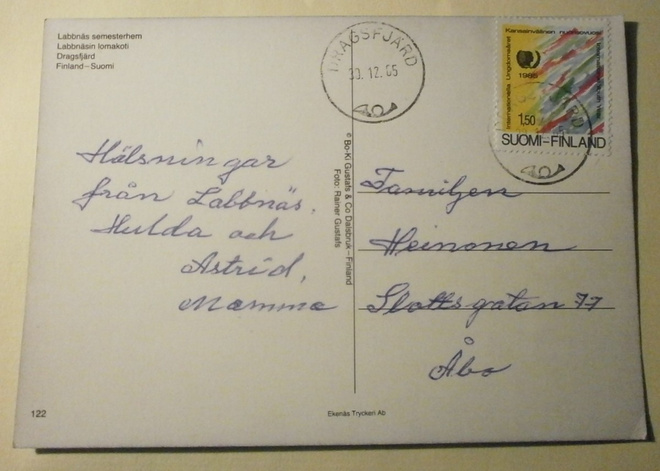 Labbnäs semesterhem
Labbnäsin lomakoti
Dragsfjärd
Finland–Suomi
DRAGSFJÄRD
30.12.85
Kansainvälinen nuorisovuosi
Internationella Ungdomsåret
International Youth Year
1985
1,50
SUOMI–FINLAND
Hälsningar
från Labbnäs.
Hulda och
Astrid,
Mamma
© Bo-Ki Gustafs & Co Dalsbruk – Finland
Foto: Rainer Gustafs
Familjen
Heinonen
Slottsgatan 77
Åbo
122
Ekenäs Tryckeri Ab